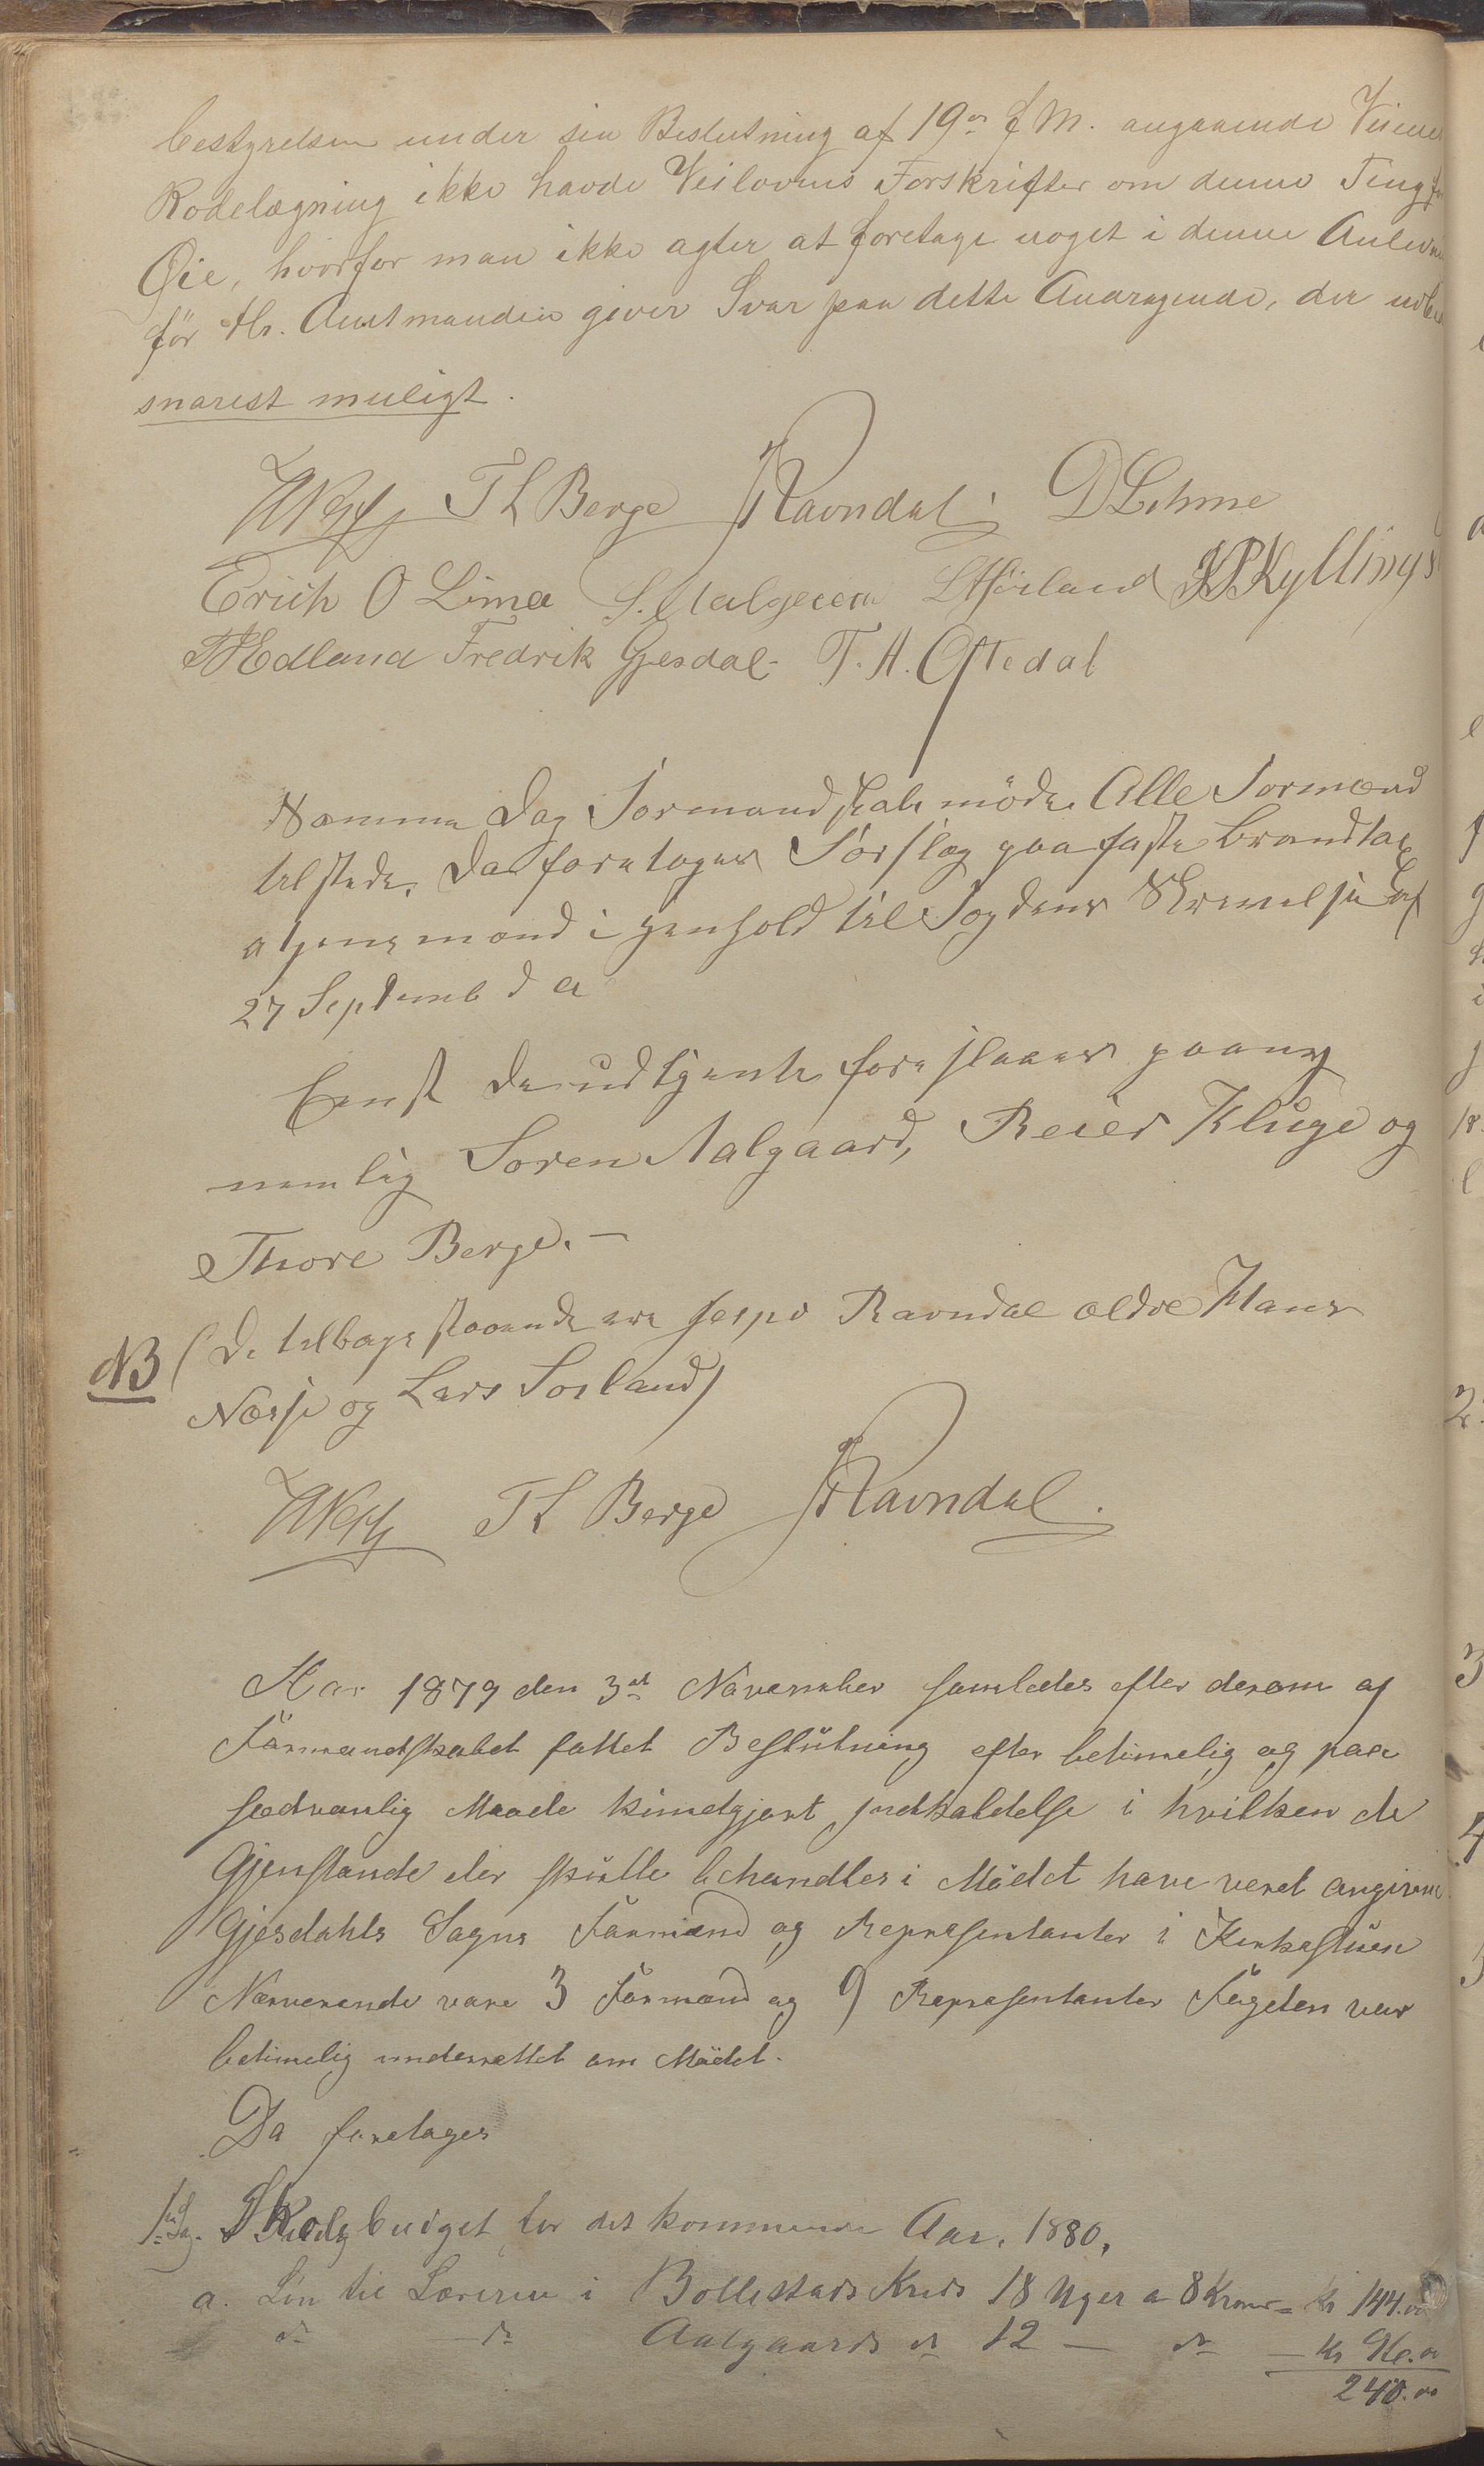 bestyrelsen under sin Beslutning af 19de f M. angaaende Veiene
Rodelægning ikke havde Veilovens Forskrifter om denne Ting for
Øie, hvorfor man ikke agter at foretage noget i denne Anledn
før Hr. Amtmanden giver Svar paa dette Andragende, der udbe
snarest muligt.
T L Berge Ravndal D Lihme
Erich O Lima S. Aalgaard L Sørland Kyllings
Edland Fredrik Gjesdal T. A. Oftedal
Samme Dag Formandskabsmøde. Alle Formænd
tilstede. Da foretoges Forslag paa faste brandtax
ationsmænd i Henhold til Fogdens Skrivelse af
27 Septemb d A
Enst De udtjente foreslaaes paany
nemlig Soren Aalgaard, Reier Kluge og
Thore Berge. —
NB (De tilbagestaaende ere Jespe Ravndal ældre Hans
Næsse og Lars Sorland)
T L Berge Ravndal.
Aar 1879 den 3die November samledes efter derom af
Formandskabet fattet Beslutning efter betimelig og paa
sædvanlig Maade kundgjort Indkaldelse i hvilken de
Gjenstande der skulle behandles i Mødet have veret angivne
Gjesdahls Sogns Formænd og Repræsentanter i Kirkestuen
Nærverende vare 3 Formænd og 9 Repræsentanter Fogden var
betimelig underrettet om Mødet.
Da foretages
1. Sag. Skolebudget for det kommende Aar. 1880.
a. Løn til Læreren i Bollestads Kreds 18 Uger a 8 Kroner = Kr 144.00
do do Aalgaards do 12 — do — Kr 96.00
240.00